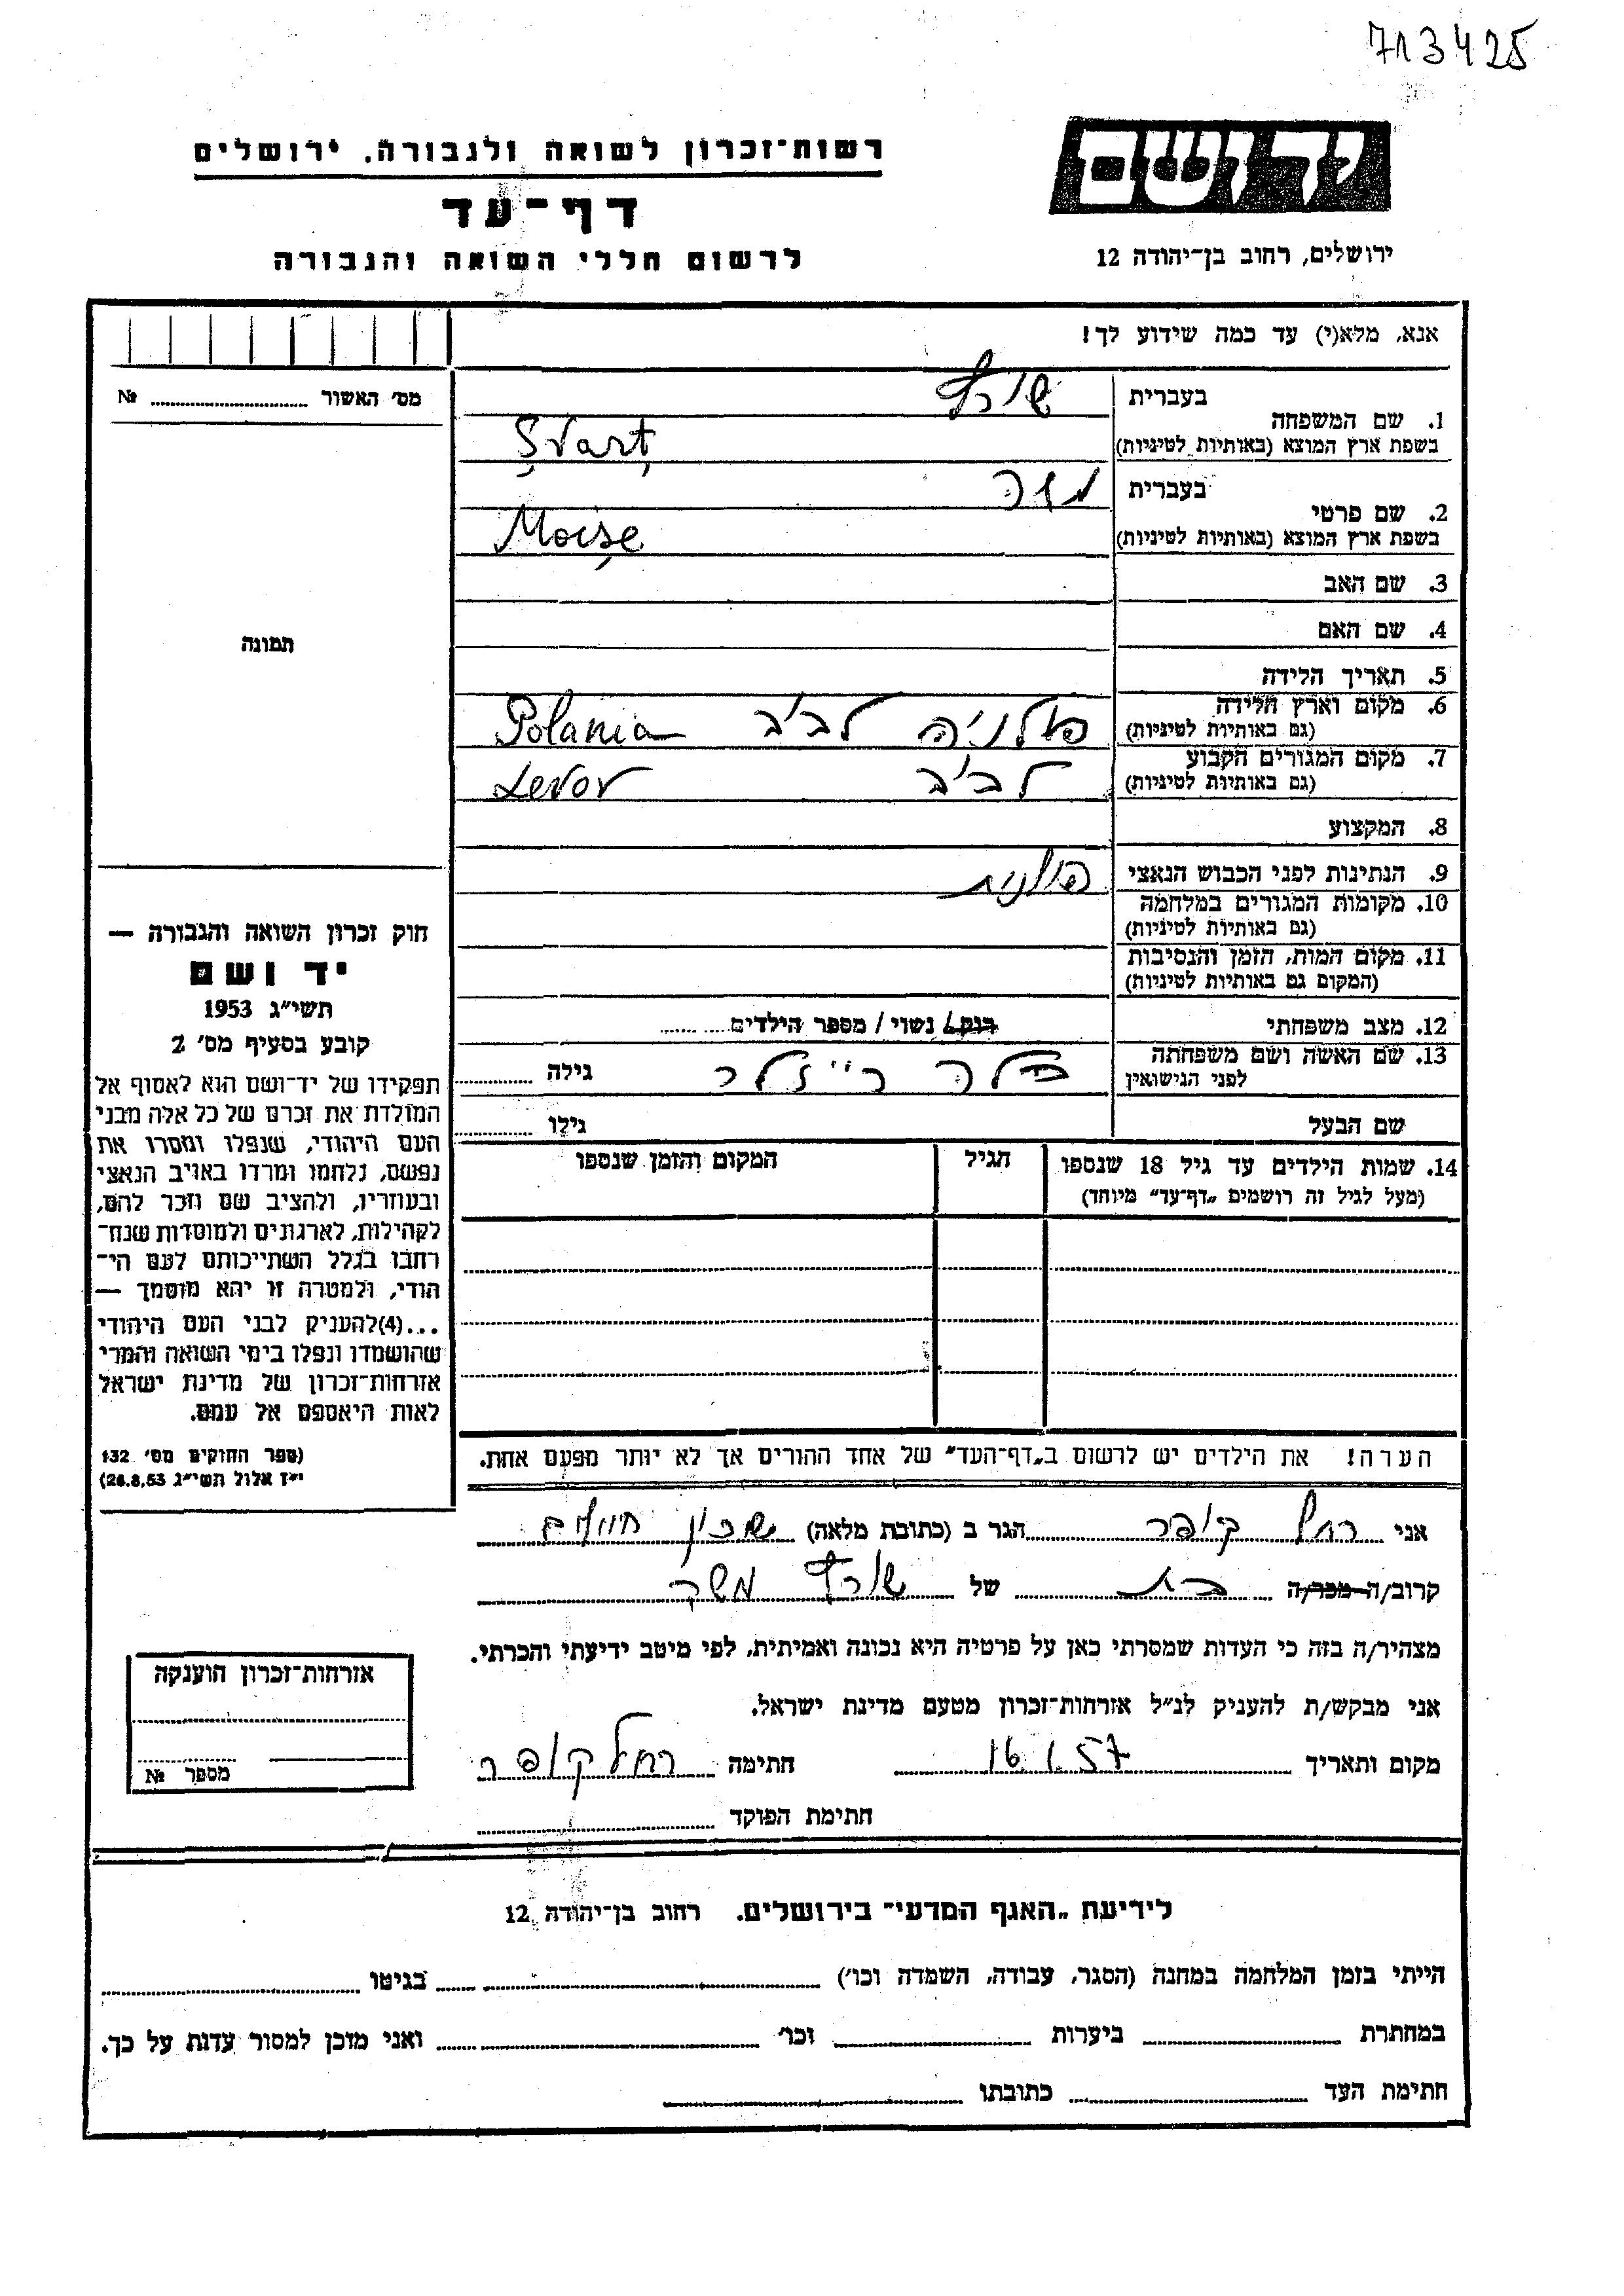 713425
יד ושם
רשות־זכרון לשואה ולגבורה, ירושלים
דף־עד
לרשום חללי השואה והגבורה
ירושלים, רחוב בן־יהודה 12
אנא, מלא(י) עד כמה שידוע לך!
מס׳ האשור № 
בעברית
1. שם המשפחה
בשפת ארץ המוצא (באותיות לטיניות) Şvarţ
בעברית משה
2. שם פרטי
בשפת ארץ המוצא (באותיות לטיניות) Moişe
3. שם האב
4. שם האם
תמונה
5. תאריך הלידה
6. מקום וארץ הלידה פולניה לבוב Polania
(גם באותיות לטיניות)
7. מקום המגורים הקבוע לבוב Levov
(גם באותיות לטיניות)
8. המקצוע
9. הנתינות לפני הכבוש הנאצי פולנית
10. מקומות המגורים במלחמה
(גם באותיות לטיניות)
11. מקום המות, הזמן והנסיבות
(המקום גם באותיות לטיניות)
12. מצב משפחתי רווק/ נשוי / מספר הילדים
13. שם האשה ושם משפחתה גילה
לפני הנישואין
שם הבעל גילו
14. שמות הילדים עד גיל 18 שנספו הגיל המקום והזמן שנספו
(מעל לגיל זה רושמים „דף־עד״ מיוחד)
הערה! את הילדים יש לרשום ב„דף־העד״ של אחד ההורים אך לא יותר מפעם אחת.
חוק זכרון השואה והגבורה —
יד ושם
תשי״ג 1953
קובע בסעיף מס׳ 2
תפקידו של יד־ושם הוא לאסוף אל
המולדת את זכרם של כל אלה מבני
העם היהודי, שנפלו ומסרו את
נפשם, נלחמו ומרדו באויב הנאצי
ובעוזריו, ולהציב שם וזכר להם,
לקהילות, לארגונים ולמוסדות שנח־
רבו בגלל השתייכותם לעם הי־
הודי, ולמטרה זו יהא מוסמך —
...(4)להעניק לבני העם היהודי
שהושמדו ונפלו בימי השואה והמרי
אזרחות־זכרון של מדינת ישראל
לאות היאספם אל עמם.
(ספר החוקים מס׳ 132
י״ז אלול תשי״ג 28.8.53)
אני רחל קופר הגר ב (כתובת מלאה) שכון
קרוב/ה מכר/ה בת של שורץ משה
מצהיר/ה בזה כי העדות שמסרתי כאן על פרטיה היא נכונה ואמיתית, לפי מיטב ידיעתי והכרתי.
אני מבקש/ת להעניק לנ״ל אזרחות־זכרון מטעם מדינת ישראל.
מקום ותאריך 16.1.57 חתימה רחל קופר
חתימת הפוקד
אזרחות־זכרון הוענקה
מספר №
לידיעת „האגף המדעי״ בירושלים. רחוב בן־יהודה 12
הייתי בזמן המלחמה במחנה (הסגר, עבודה, השמדה וכו׳) בגיטו
במחתרת ביערות וכו׳ ואני מוכן למסור עדות על כך.
חתימת העד כתובתו